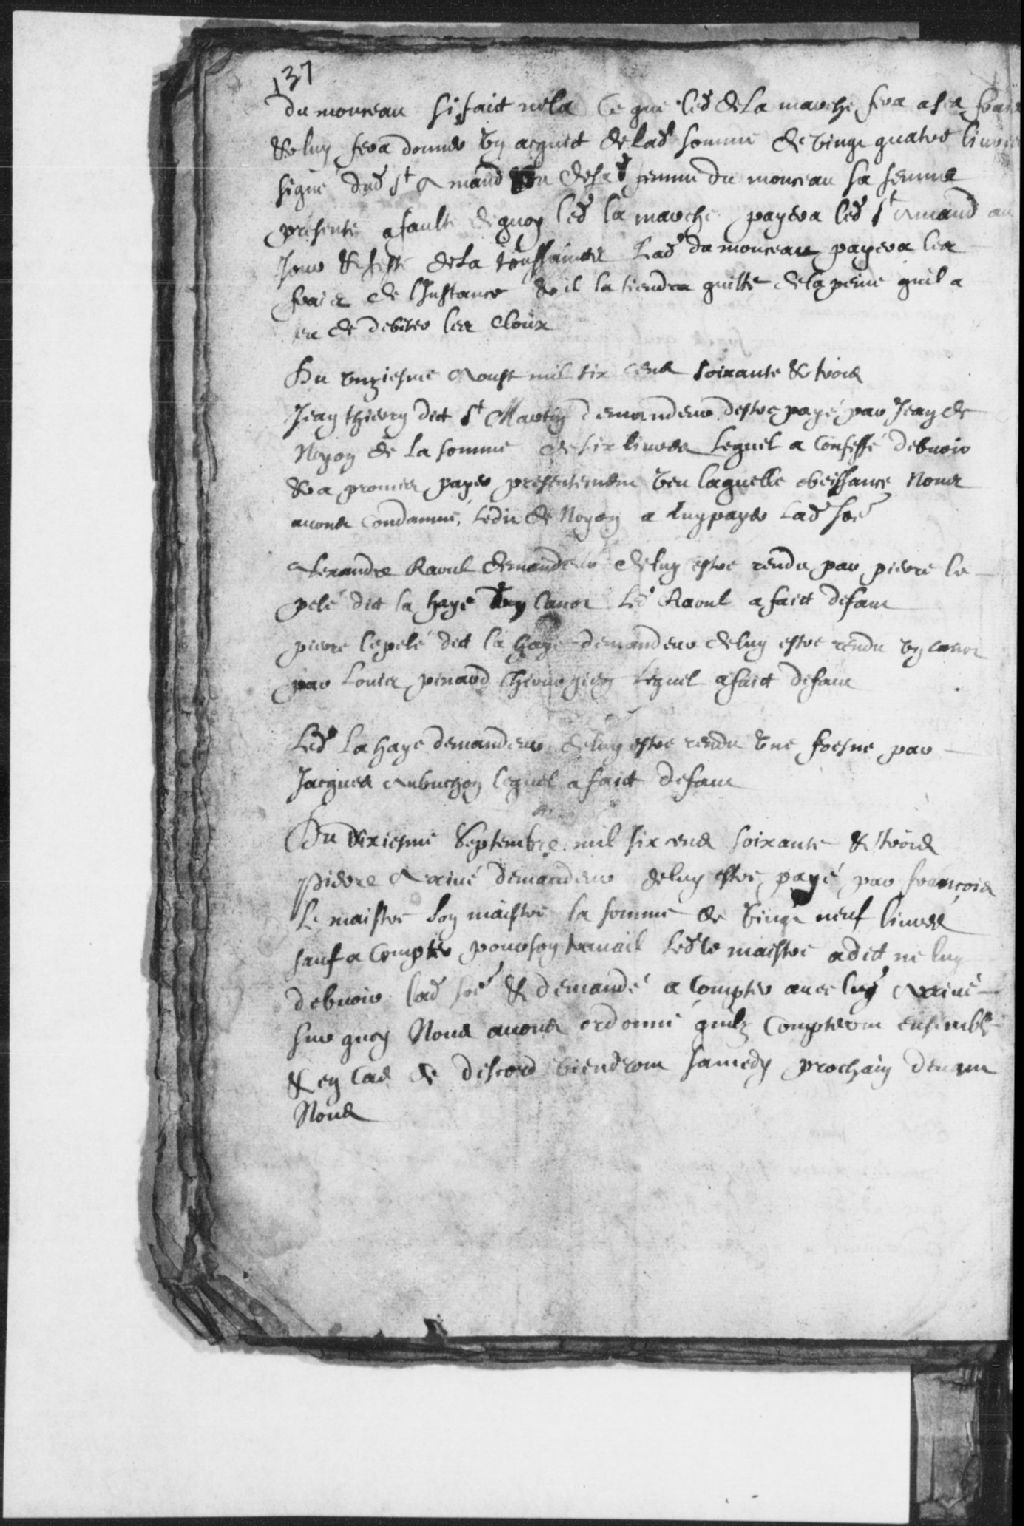 137
du monceau si faict nela Ce que led de La marche fera a ses frais
& luy fera donner un acquict de lad somme de vingt quatre livres
signé dud St Amand ou de sa femme du monceau sa femme
presente a faulte de quoy led la marche payera led St Amand au
Jour & feste de la toussaincts Lad du monceau payera les
frais de l'Instance & il la tiendra quitte de la peine quil a
eu de debiter les cloux
Du unziesme Aoust mil six cens soixante & trois
Jean thierry dict St Martin demandeur destre payé par Jean de
Noyon de La somme de six livres Lequel a Confessé debvoir
& a promis payer presentement Veu laquelle obeissance Nous
avons Condamné ledit de Noyon a Luy payer Lad soe
Alexandre Raoul demandeur de luy estre rendu par pierre le
pelé dict la haye un Canot Led Raoul a faict defaut
pierre lepelé dict la haye demandeur de luy estre rendu un canot
par Louis pinard Chirurgien Lequel a faict defaut
Led La haye demandeur de luy estre rendu une foesne par
Jacques Aubuchon lequel a faict defaut
Du dixiesme Septembre mil six cens soixante & trois
Pierre demandeur de luy estre payé par francois
Le maistre son maistre la somme de vingt neuf livres
sauf a Compter pour son travail Led le maistre a dict ne luy
debvoir lad soe & demandé a Compter avec luy
sur quoy Nous avons ordonné quilz Compteront ensemble
& en Cas de discord viendront samedy prochain devant
Nous